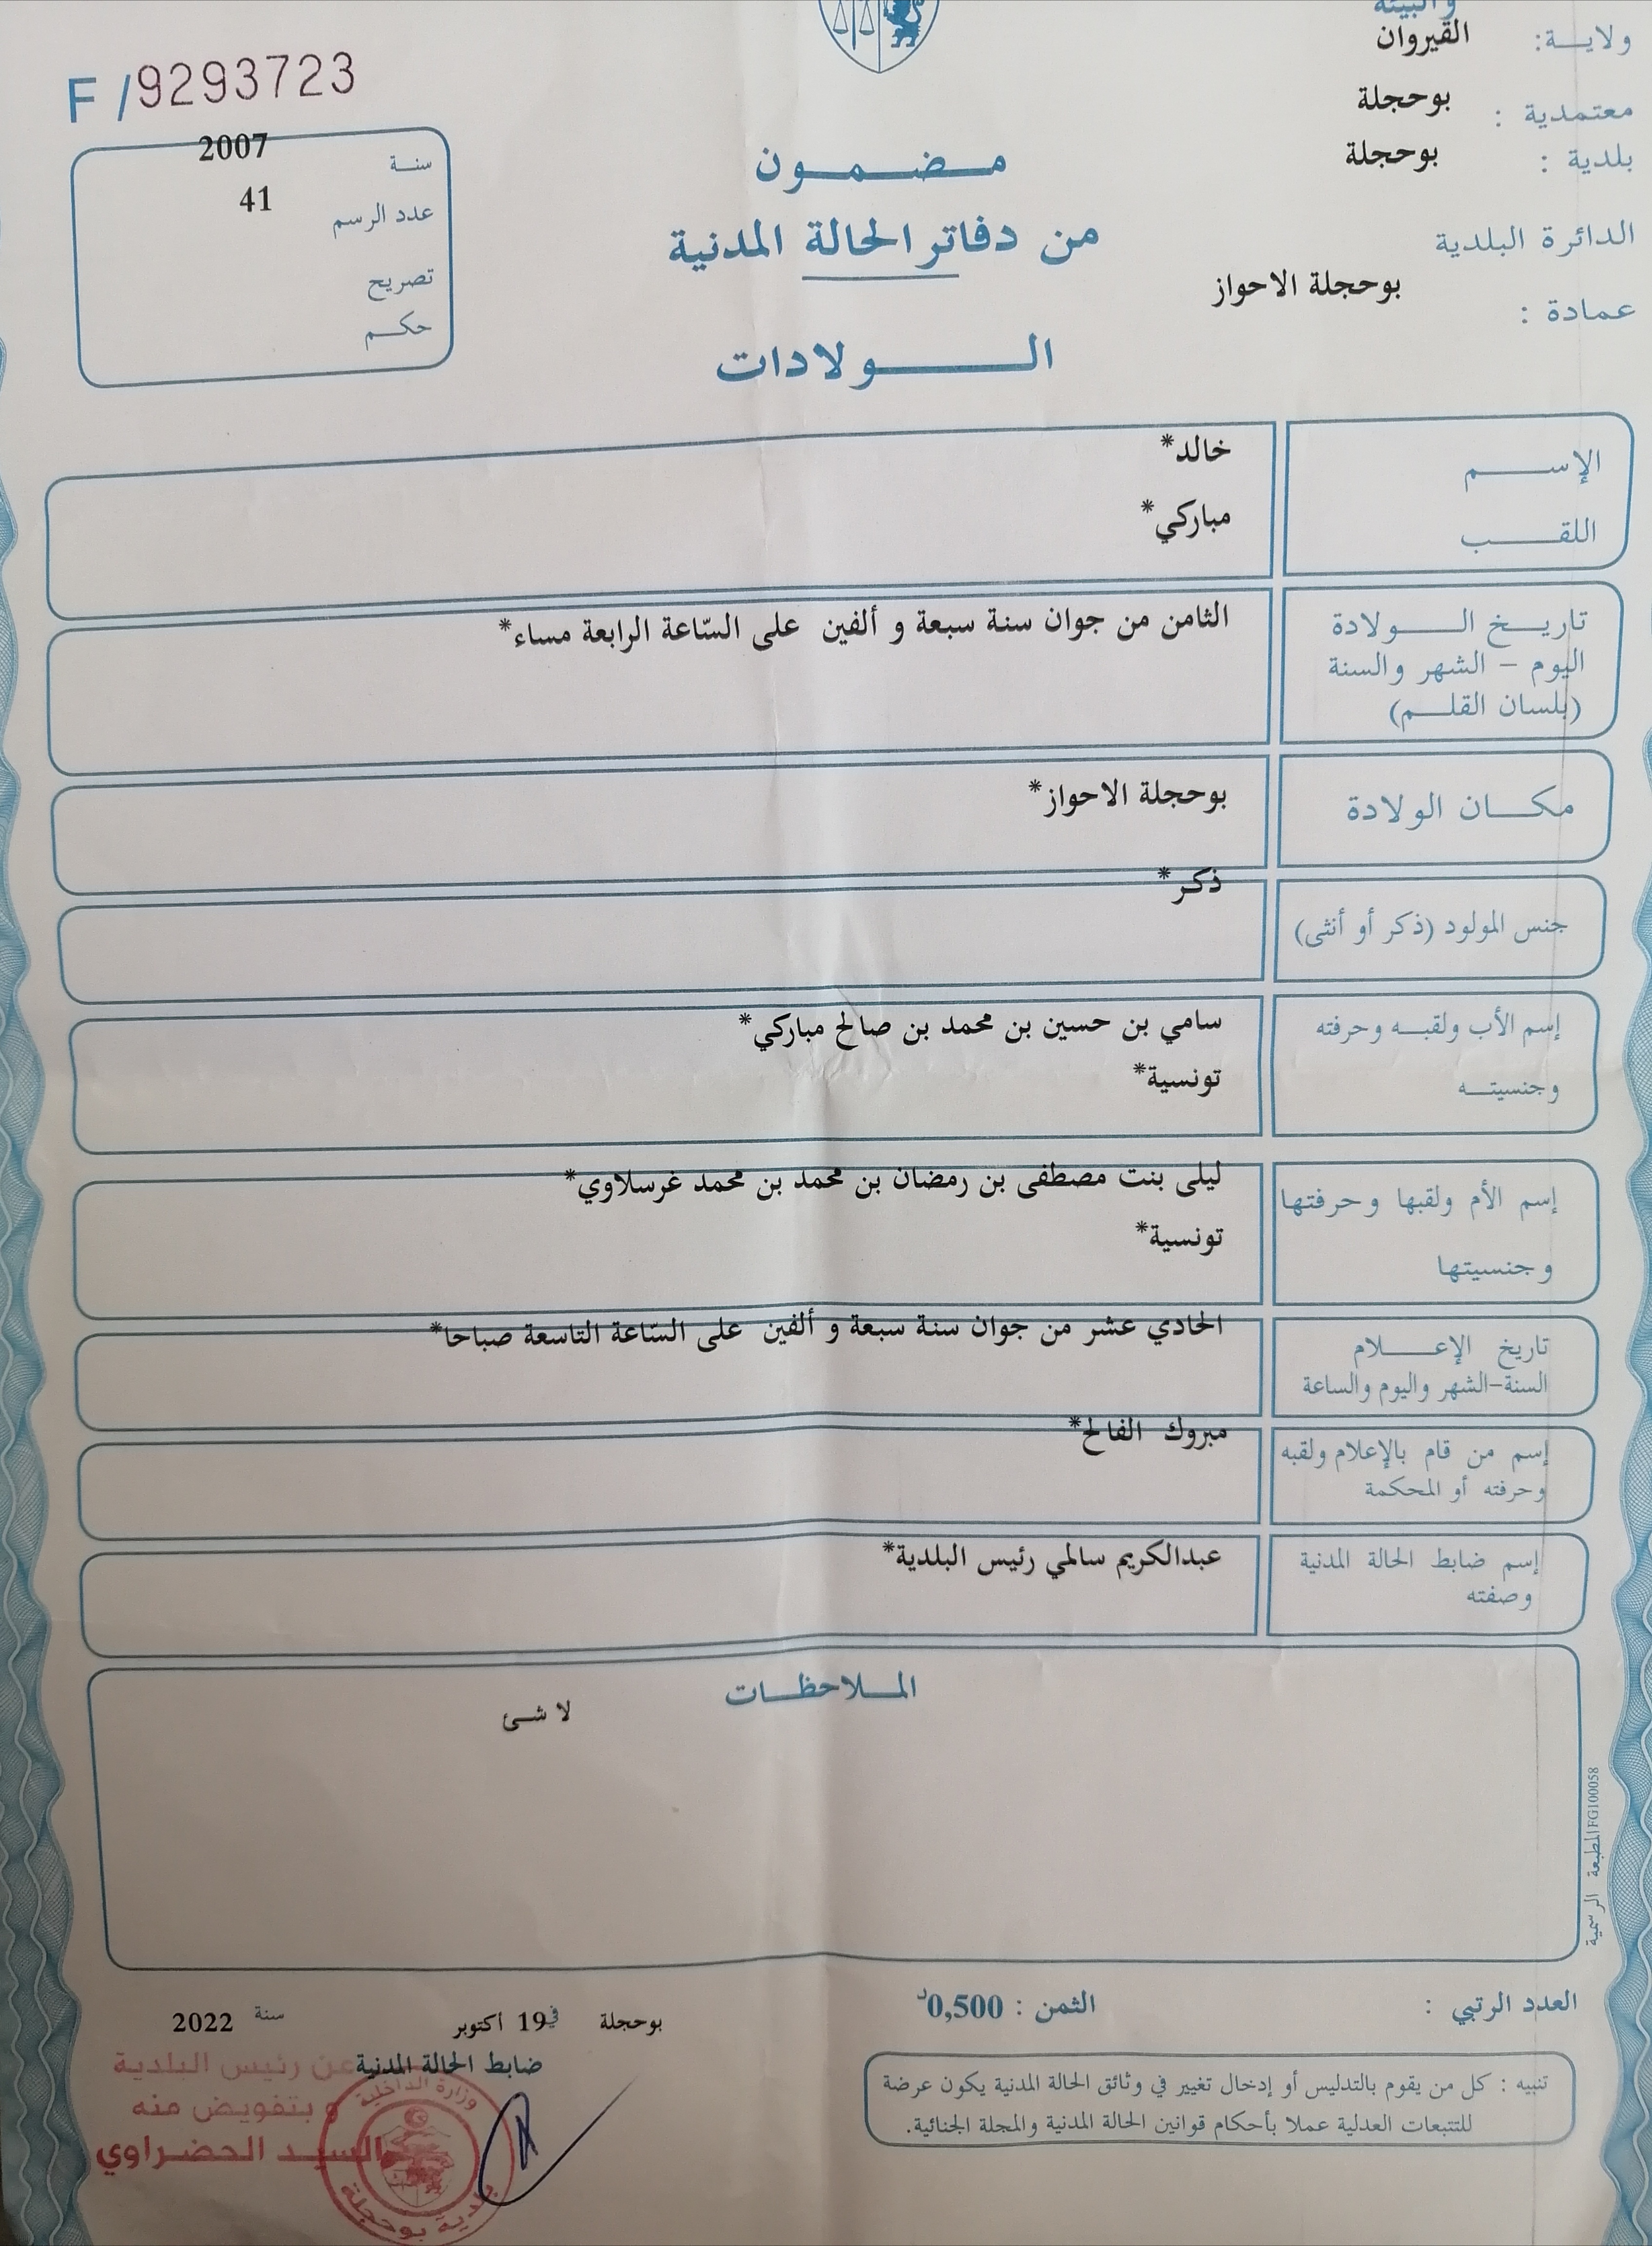 والبيئة
ولاية: القيروان
معتمدية : بوحجلة
بلدية : بوحجلة
الدائرة البلدية
عمادة : بوحجلة الاحواز
F /9293723
سنة 2007
عدد الرسم 41
تصريح
حكم
مضمون
من دفاتر الحالة المدنية
الولادات
الإسم خالد*
اللقب مباركي*
تاريخ الولادة
اليوم – الشهر والسنة
(بلسان القلم)
الثامن من جوان سنة سبعة و ألفين على السّاعة الرابعة مساء*
مكان الولادة بوحجلة الاحواز*
جنس المولود (ذكر أو أنثى) ذكر*
إسم الأب ولقبه وحرفته سامي بن حسين بن محمد بن صالح مباركي*
وجنسيته تونسية*
إسم الأم ولقبها وحرفتها ليلى بنت مصطفى بن رمضان بن محمد بن محمد غرسلاوي*
وجنسيتها تونسية*
تاريخ الإعلام الحادي عشر من جوان سنة سبعة و ألفين على السّاعة التاسعة صباحا*
السنة-الشهر واليوم والساعة
إسم من قام بالإعلام ولقبه مبروك الفالح*
وحرفته أو المحكمة
إسم ضابط الحالة المدنية عبدالكريم سالمي رئيس البلدية*
وصفته
الملاحظات
لا شئ
المطبعة الرسمية FG100058
العدد الرتبي :
الثمن : 0,500د
بوحجلة في 19 أكتوبر سنة 2022
ضابط الحالة المدنية
عن رئيس البلدية
و بتفويض منه
السيد الحضراوي
وزارة الداخلية
بلدية بوحجلة
تنبيه : كل من يقوم بالتدليس أو إدخال تغيير في وثائق الحالة المدنية يكون عرضة
للتتبعات العدلية عملا بأحكام قوانين الحالة المدنية والمجلة الجنائية.